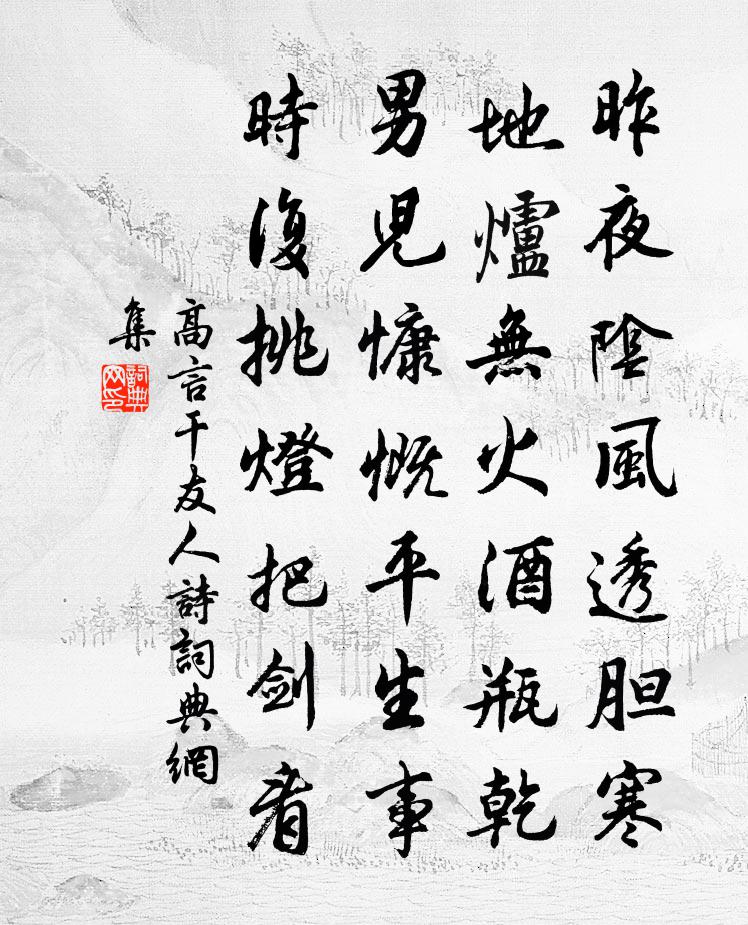 昨夜陰風透胆寒
地爐無火酒瓶乾
男兒慷慨平生事
時復挑燈把剑看
高言干友人詩詞典網
集
詞典
网印